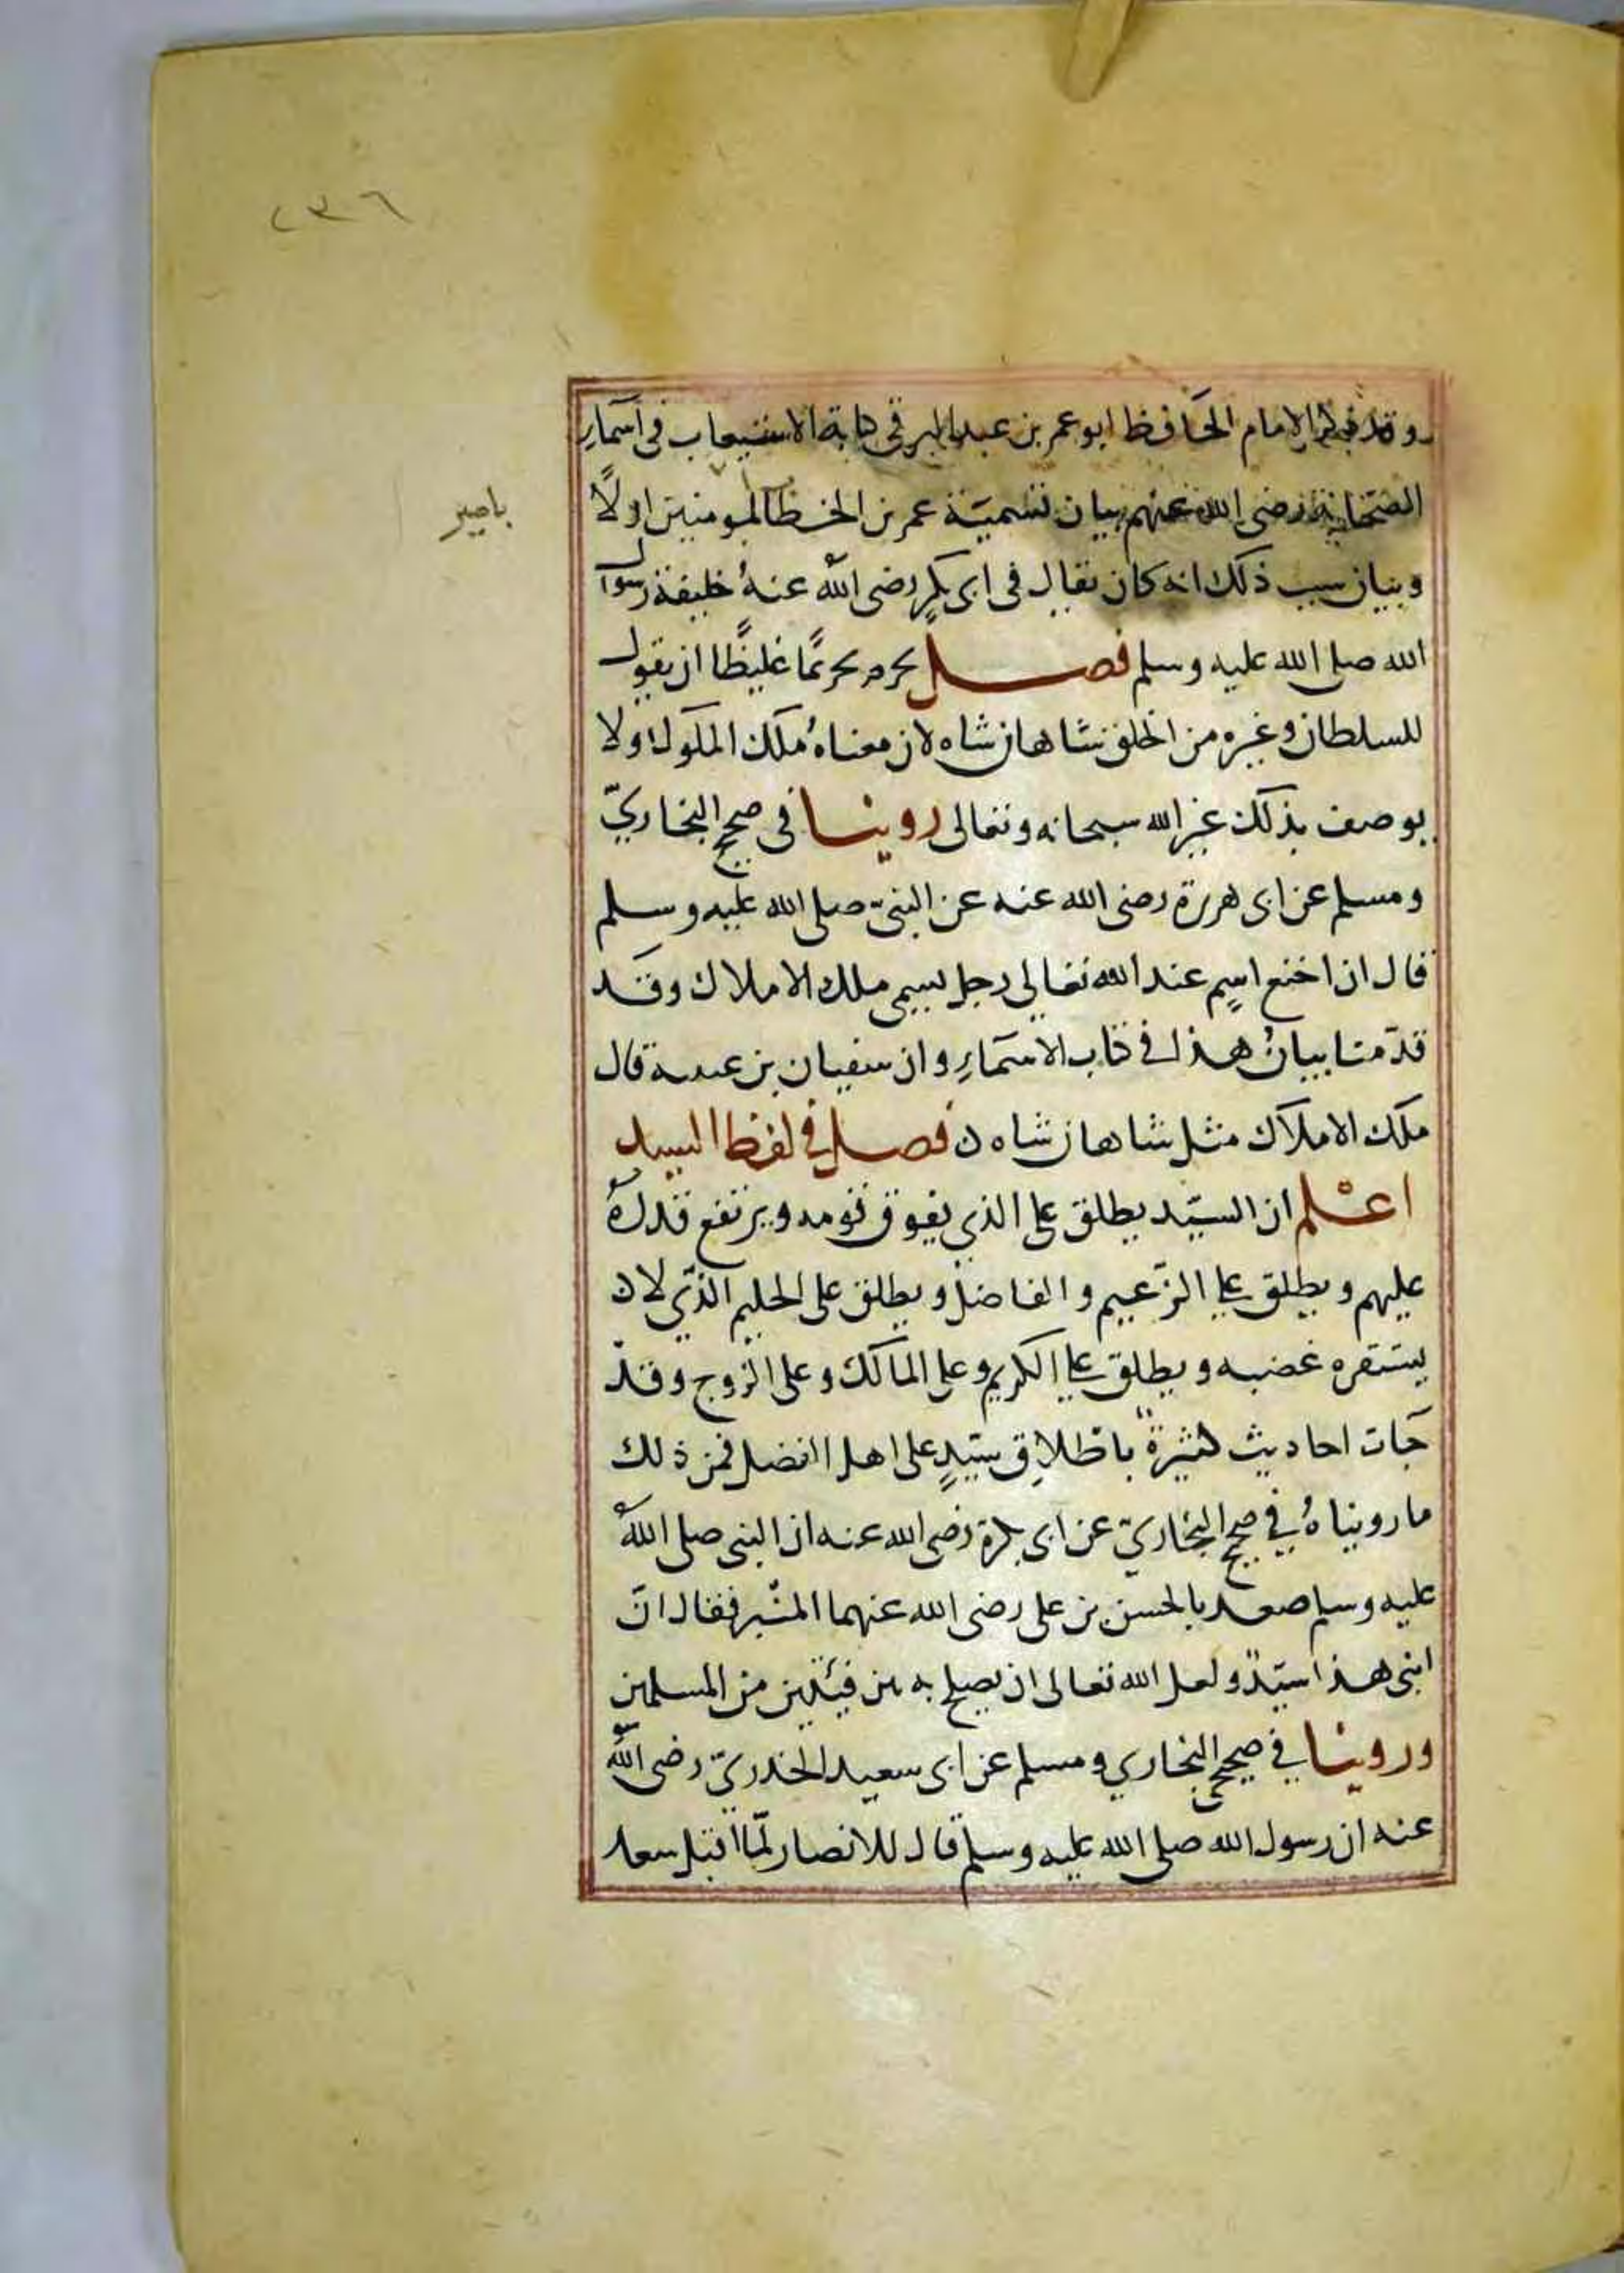 ٢٣٦
وقد ذكر الامام الحافظ ابو عمر بن عبد البر فى كتابة الاستيعاب فى اسمآءِ
الصحابة رضى الله عنهم بيان تسمية عمر بن الخطا المومنين اولاً
بامير
وبيان سبب ذلك انه كان يقال فى ابى بكرٍ رضى الله عنهُ خليفة رسول
الله صلى الله عليه وسلم فصل يحرم تحريمًا غليظًا ان يقول
للسلطان وغيره من الخلق شاهان شاه لان معناهُ ملك الملوك ولا
يوصف بذلك غير الله سبحانه وتعالى روينا فى صحيح البخاريّ
ومسلم عن ابى هريرة رضى الله عنه عن النبىّ صلى الله عليه وسلم
قال ان اخنع اسمٍ عند الله تعالى رجل يسمى ملك الاملاك وقد
قدّمنا بيانُ هذا فى كتاب الاسمآءِ وان سفيان بن عيينة قال
ملك الاملاك مثل شاهان شاه ن فصل فى لفظ السيد
اعلم ان السيّد يطلق على الذي يفوق قومه ويرتفع قدرهُ
عليهم ويطلق على الزّعيم والفاضل ويطلق على الحليم الذّي لا
يستفزه غضبه ويطلق على الكريم وعلى المالك وعلى الزوج وقد
جآت احاديث كثيرةٌ باطلاقِ سيّدٍ على اهل الفضل فمن ذلك
ما رويناهُ فى صحيح البخاريّ عن ابى بكرة رضى الله عنه ان النبى صلى اللهُ
عليه وسلم صعد بالحسن بن على رضى الله عنهما المنبر فقال انّ
ابنى هذا سيّدٌ ولعل الله تعالى ان يصلح به بين فئتين من المسلمين
وروينا فى صحيحى البخاري ومسلم عن ابى سعيد الخدريّ رضى اللهُ
عنه ان رسول الله صلى الله عليه وسلم قال للانصار لمّا اقبل سعد